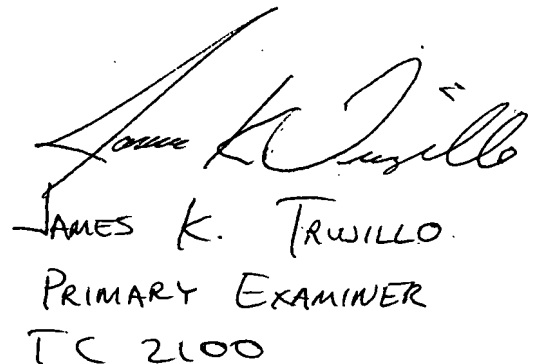 James K Trujillo
JAMES K. TRUJILLO
PRIMARY EXAMINER
TC 2100